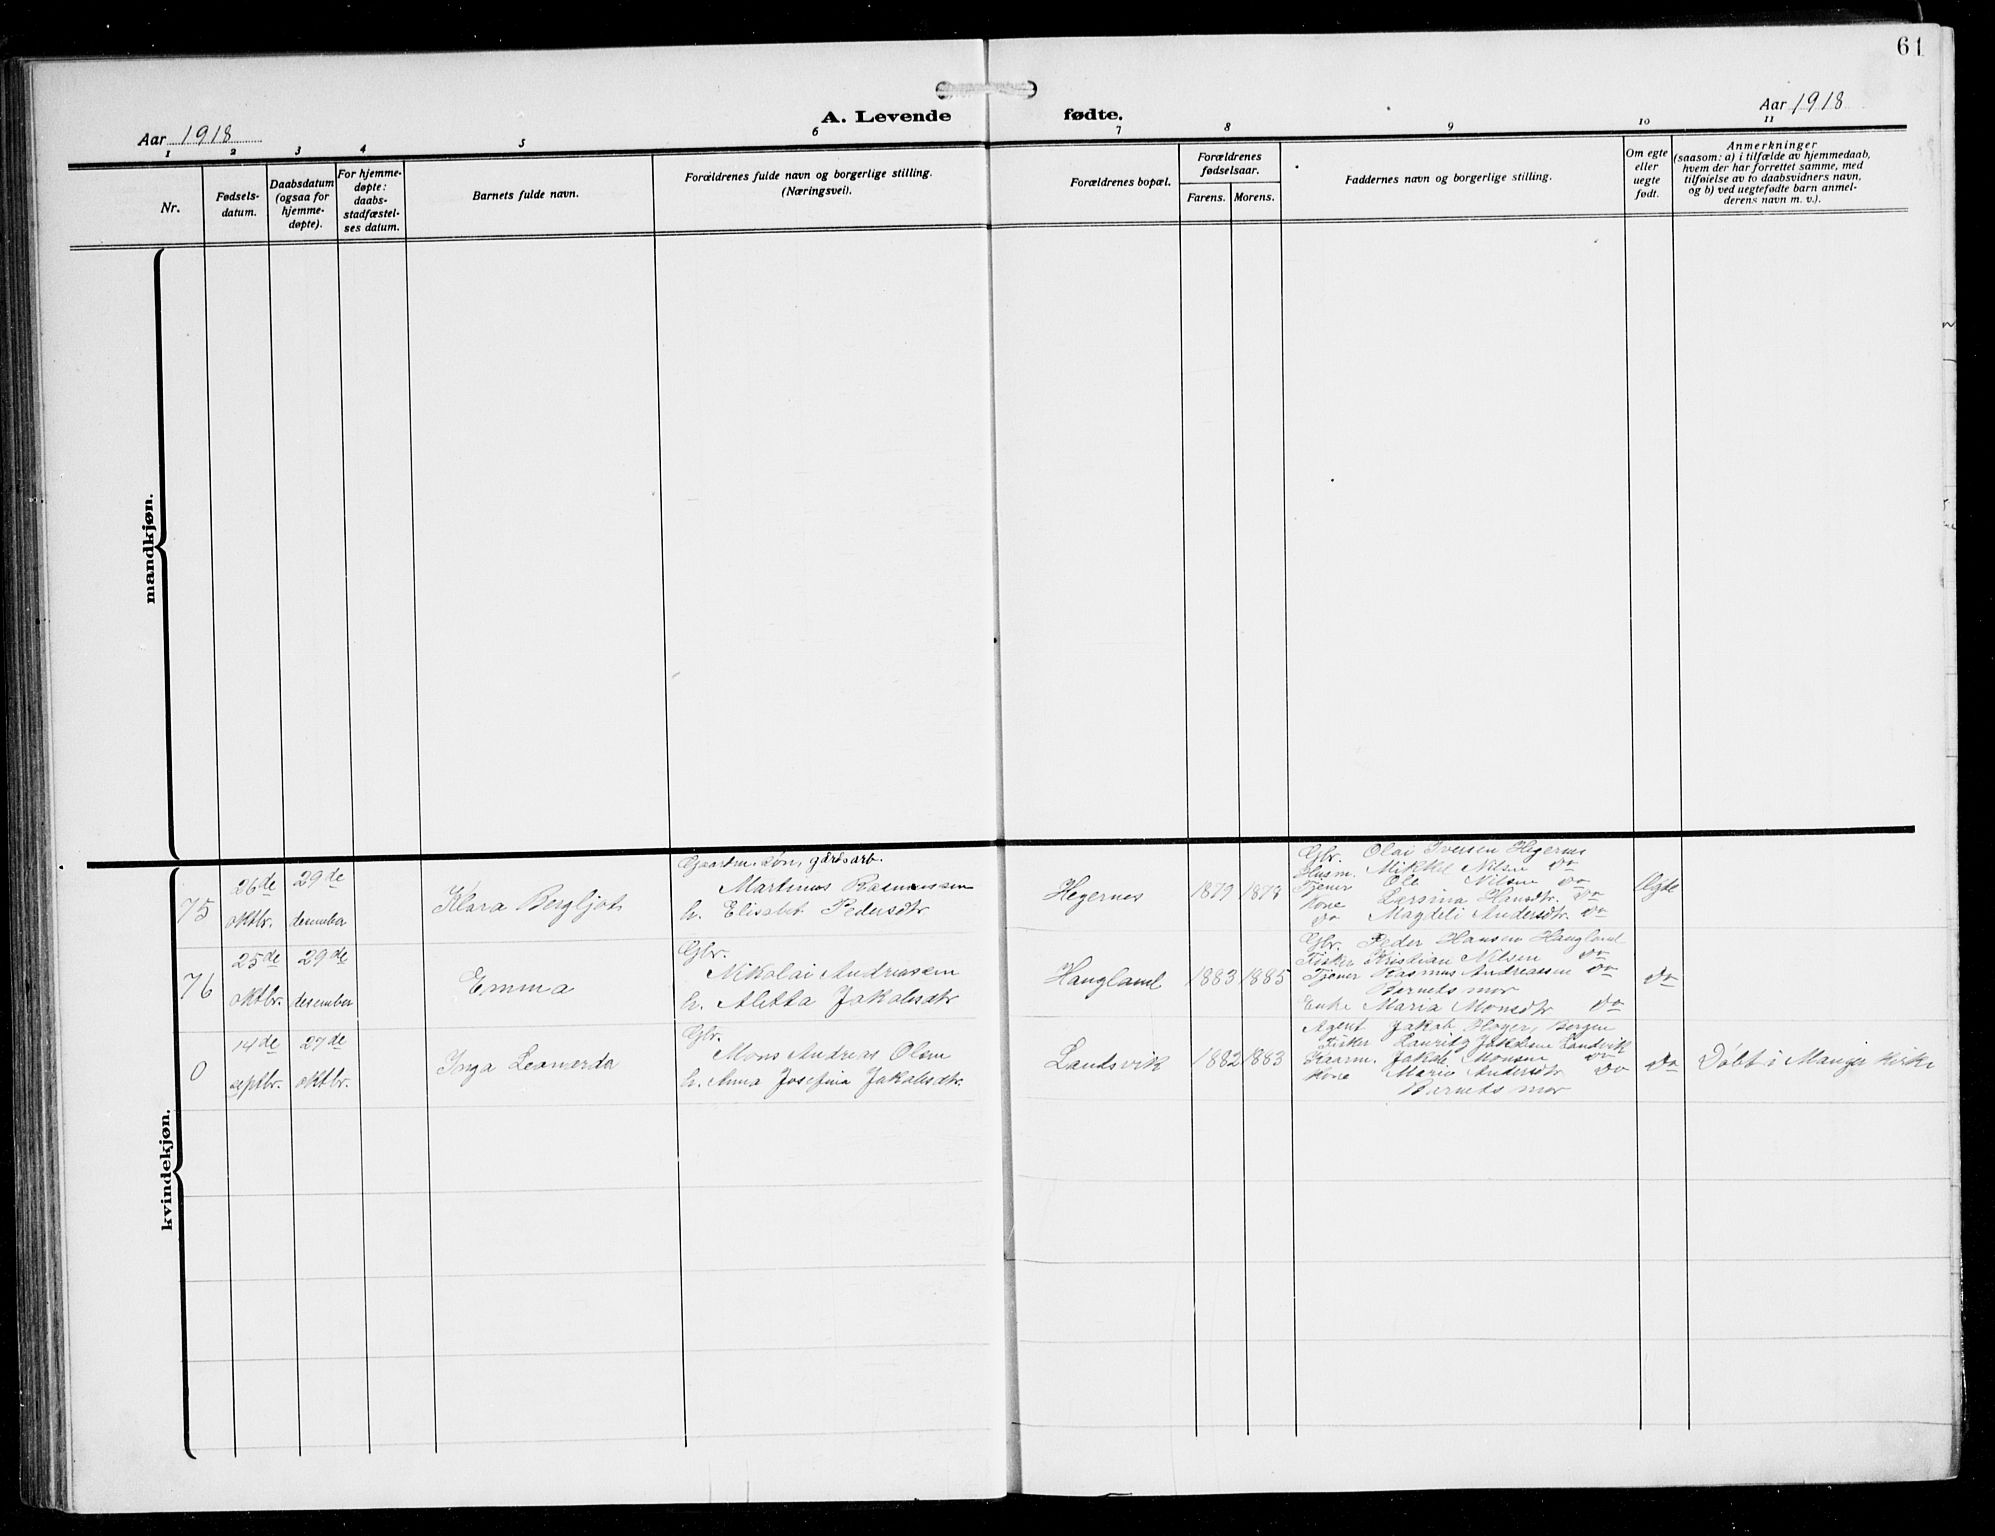 61
Aar 1918
A. Levende fødte.
Aar 1918
1 2 3 4 5 6 7 8 9 10 11
Nr.
Fødsels-
datum.
Daabsdatum
(ogsaa for
hjemme-
døpte).
For hjemme-
døpte:
daabs-
stadfæstel-
ses datum.
Barnets fulde navn.
Forældrenes fulde navn og borgerlige stilling.
(Næringsvei).
Forældrenes bopæl.
Forældrenes
fødselsaar.
Farens. Morens.
Faddernes navn og borgerlige stilling.
Om egte
eller
uegte
født.
Anmerkninger
(saasom: a) i tilfælde av hjemmedaab,
hvem der har forrettet samme, med
tilføielse av to daabsvidners navn,
og b) ved uegtefødte barn anmel-
derens navn m. v.).
mandkjøn.
kvindekjøn.
75
26de
oktbr.
29de
desember
Klara Bergljot
Gaardm. søn, gårdsarb.
Martinus Rasmussen
h. Elisabet Pedersdtr
Hegernes
1879 1878
Gbr. Olai Iversen Hegernes
Husm. Mikkel Nilsen Do
Tjener Ole Nilsen Do
Kone Larsina Hansdtr. Do
Do Magdeli Andersdtr. Do
Ægte
76
25de
oktbr.
29de
desember
Emma
Gbr.
Nikolai Andreassen
h. Aletta Jakobsdtr
Haugland
1883 1885
Gbr. Peder Hansen Haugland
Fisker Kristian Nilsen Do
Tjener Rasmus Andreassen Do
Barnets mor
Enke Maria Monsdtr Do
Do
0
14de
septbr.
27de
oktbr.
Inga Leonarda
Gbr.
Mons Andreas Olsen
h. Anna Josefina Jakobsdtr.
Landsvik
1882 1883
Agent Jakob Høyer, Bergen
Fisker Lauritz Jakobsen Landsvik
Kaarm. Jakob Monsen Do
Kone Marie Andersdtr. Do
Barnets mor
Do
Døbt i Manger kirke